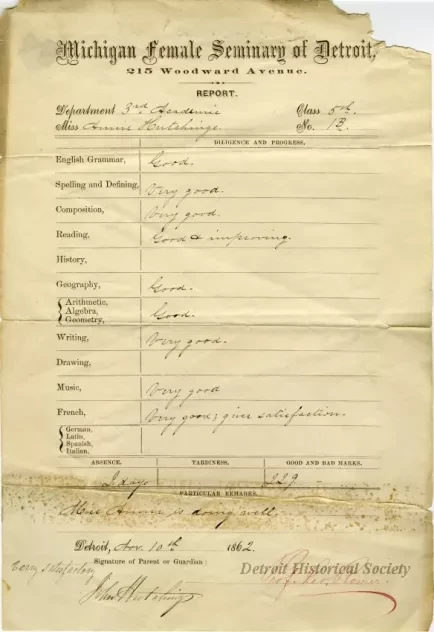 Michigan Female Seminary of Detroit,
215 Woodward Avenue.
REPORT.
Department 3rd Academic Class 5th.
Miss Annie Hutchings. No. 13.
DILIGENCE AND PROGRESS.
English Grammar, Good.
Spelling and Defining, Very good.
Composition, Very good.
Reading, Good & improving.
History,
Geography, Good.
Arithmetic,
Algebra, Good.
Geometry,
Writing, Very good.
Drawing,
Music, Very good
French, Very good; gives satisfaction.
German,
Latin,
Spanish,
Italian.
ABSENCE. TARDINESS. GOOD AND BAD MARKS.
2 days 229
PARTICULAR REMARKS.
Miss Annie is doing well.
Detroit, Nov. 10th 1862.
Signature of Parent or Guardian:
Very satisfactory
John Hutchings
Detroit Historical Society